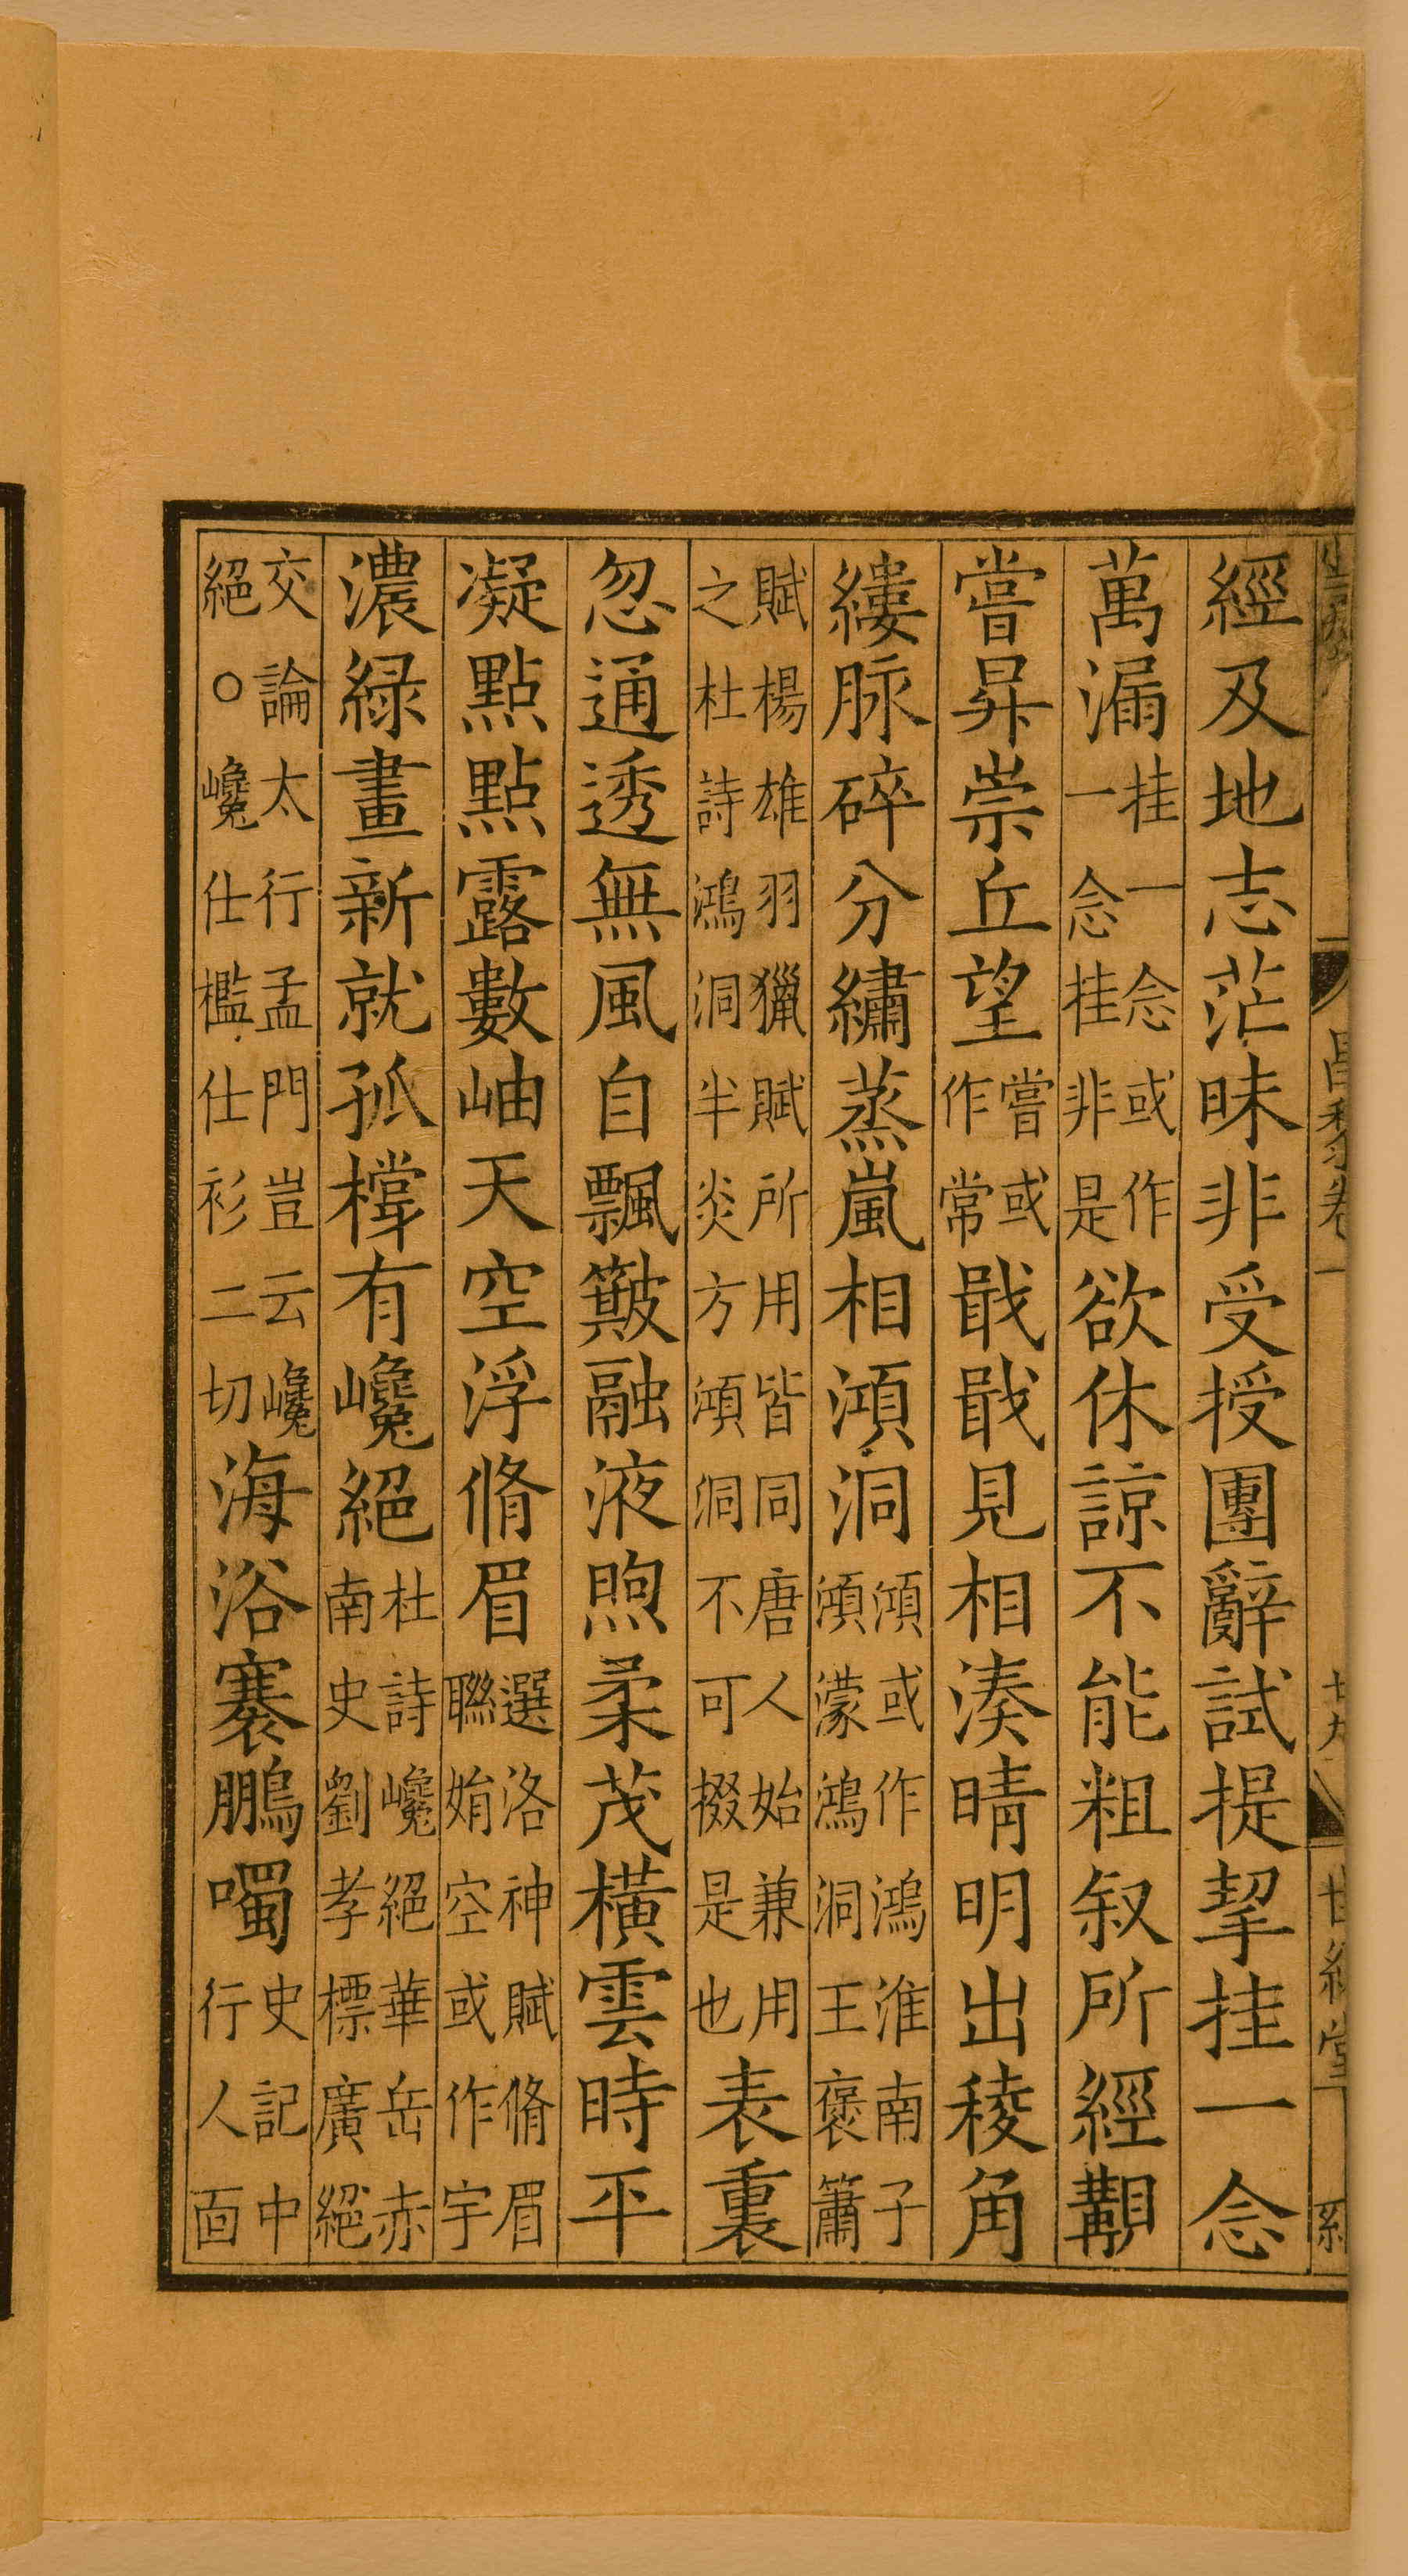 經及地志茫昧非受授團辭試提挈挂一念
萬漏挂一念或作一念挂非是欲休諒不能粗叙所經覯
嘗昇崇丘望嘗或作常戢戢見相湊晴明出稜角
縷脉碎分繡蒸嵐相澒洞澒或作鴻淮南子澒濛鴻洞王褒簫
賦楊雄羽獵賦所用皆同唐人始兼用之杜詩鴻洞半炎方澒洞不可掇是也表裏
忽通透無風自飄簸融液煦柔茂橫雲時平
凝點點露數岫天空浮脩眉選洛神賦脩眉聯娟空或作宇
濃綠畫新就孤橕有巉絕杜詩巉絕華岳赤南史劉孝標廣絕
交論太行孟門豈云巉絕○巉仕檻仕衫二切海浴褰鵬噣史記中行人面
昌黎卷一